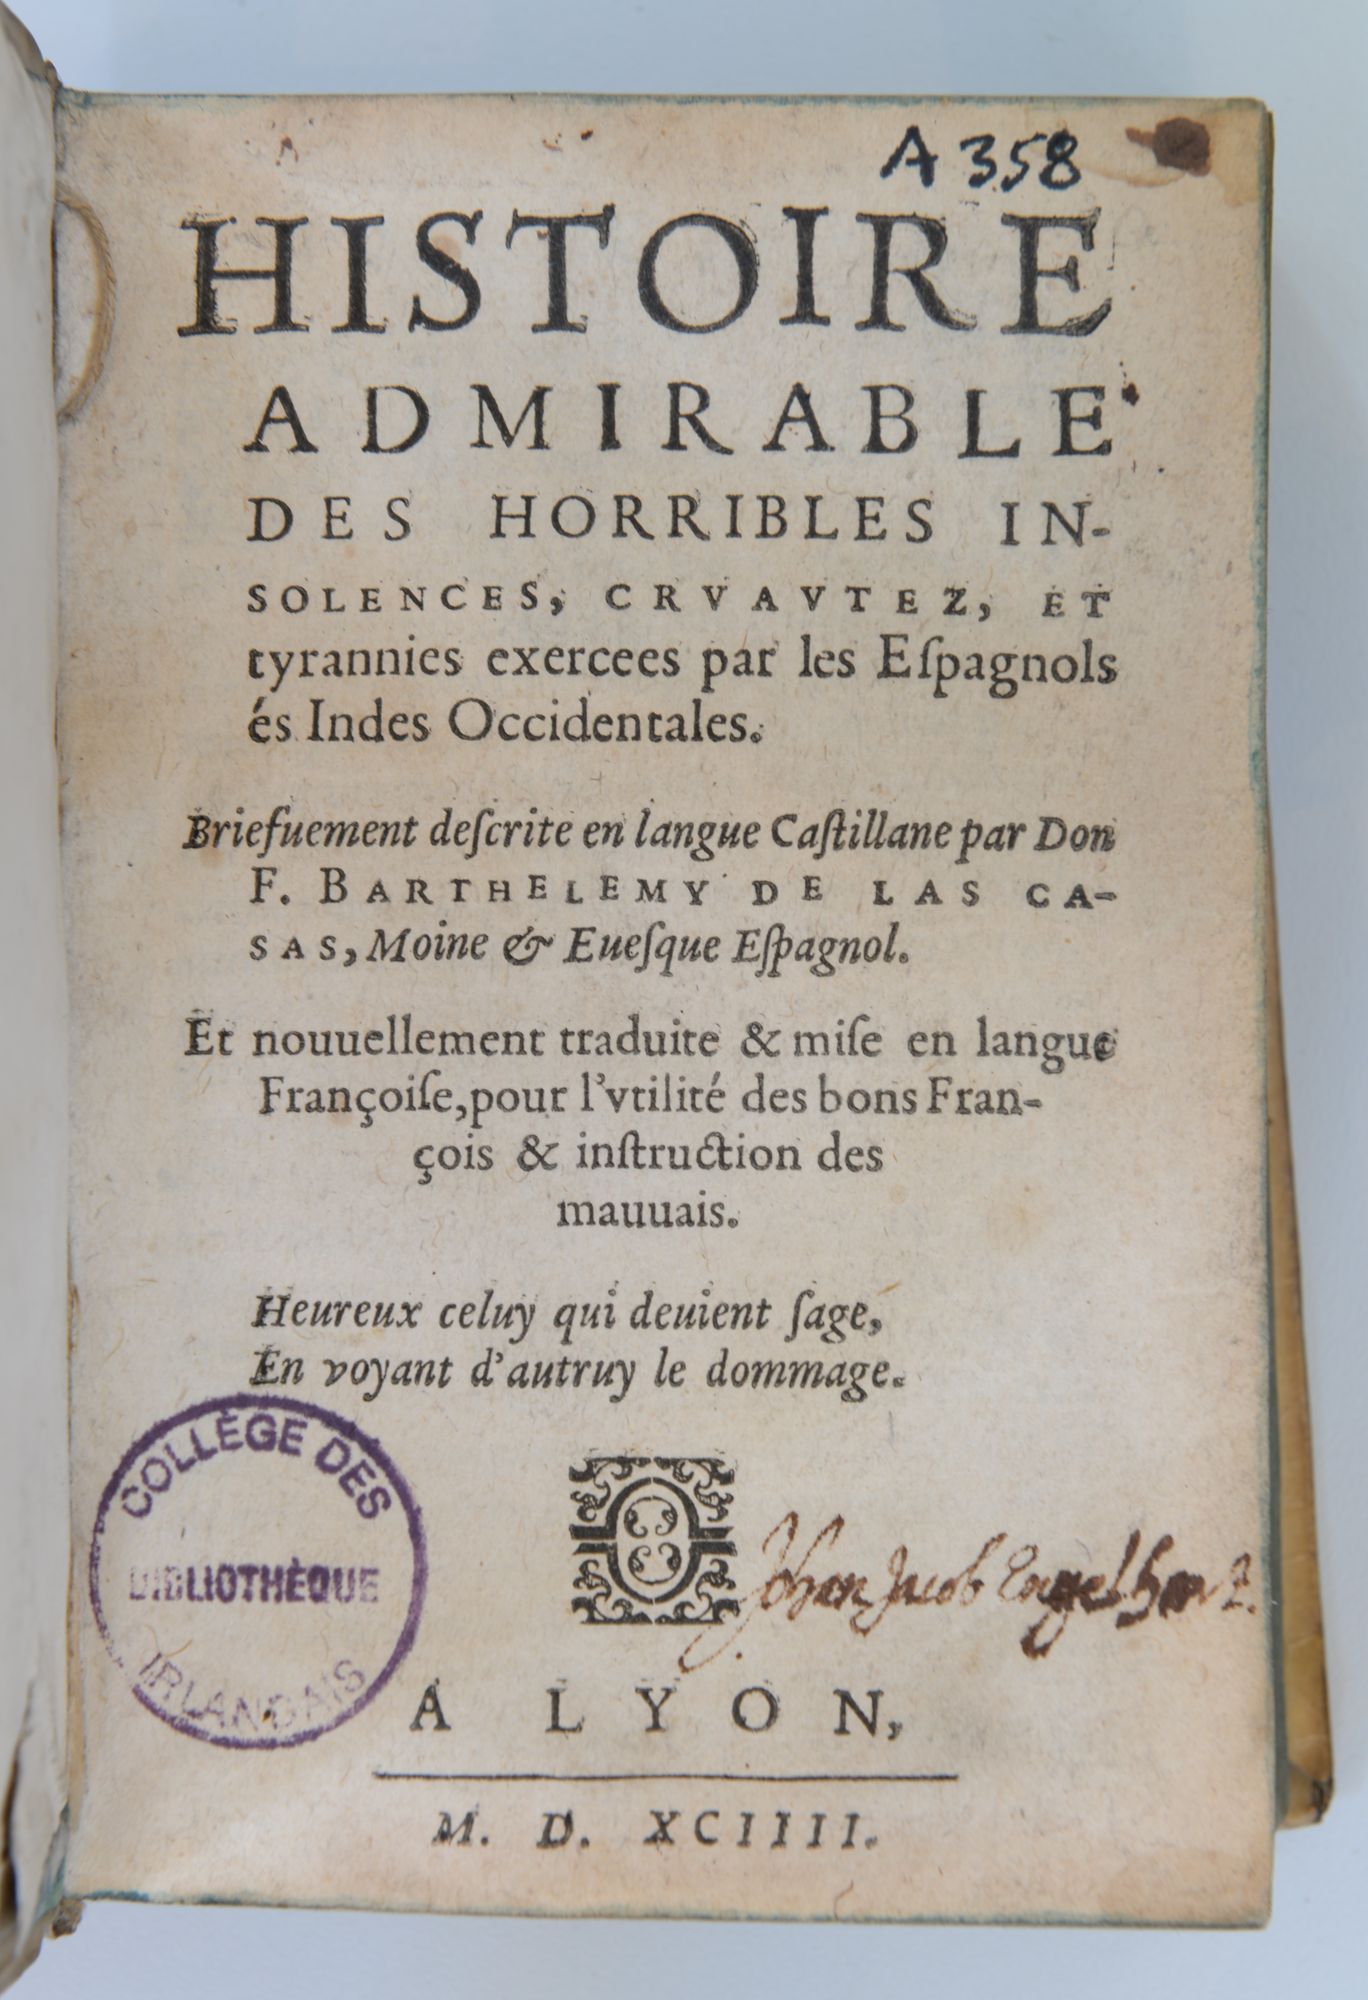 A 358
HISTOIRE
ADMIRABLE
DES HORRIBLES IN-
SOLENCES, CRVAVTEZ, ET
tyrannies exercees par les Eſpagnols
és Indes Occidentales.
Briefuement deſcrite en langue Caſtillane par Don
F. BARTHELEMY DE LAS CA-
SAS, Moine & Eueſque Eſpagnol.
Et nouuellement traduite & miſe en langue
Françoiſe, pour l'vtilité des bons Fran-
çois & inſtruction des
mauuais.
Heureux celuy qui deuient ſage,
En voyant d'autruy le dommage.
COLLÈGE DES
BIBLIOTHÈQUE
IRLANDAIS
Johan Jacob Engelhart.
A LYON,
M. D. XCIIII.